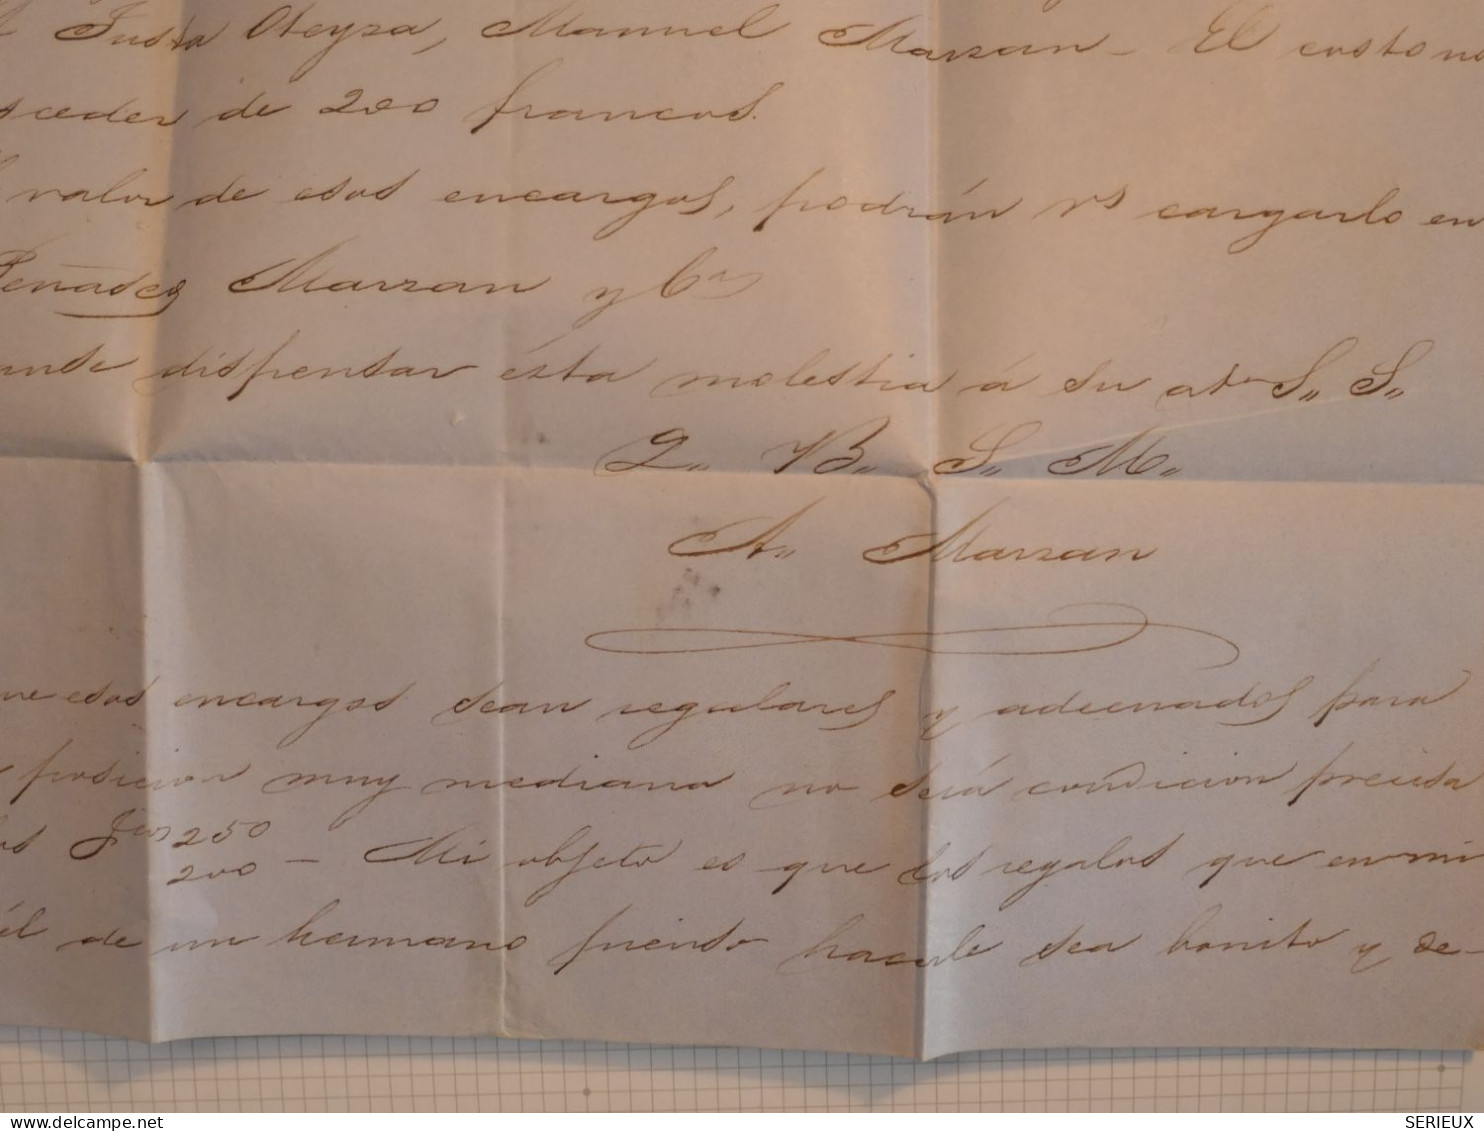 Justa Oteyza, Manuel Marzan - El costo no
sceder de 200 francos.
valor de esos encargos, podrán Vs cargarlo en
Penades Marzan y Cia
dispensar ésta molestia á su at S,, S,,
Q,, B,, S,, M,,
A,, Marzan
ue esos encargos sean regulares y adecuados para
posicion muy mediana no será condicion precisa
los fcos 250
200 - Mi objeto es que los regalos que en mi
él de un hermano pienso hacerle sea bonito y de-
delcampe.net
SERIEUX